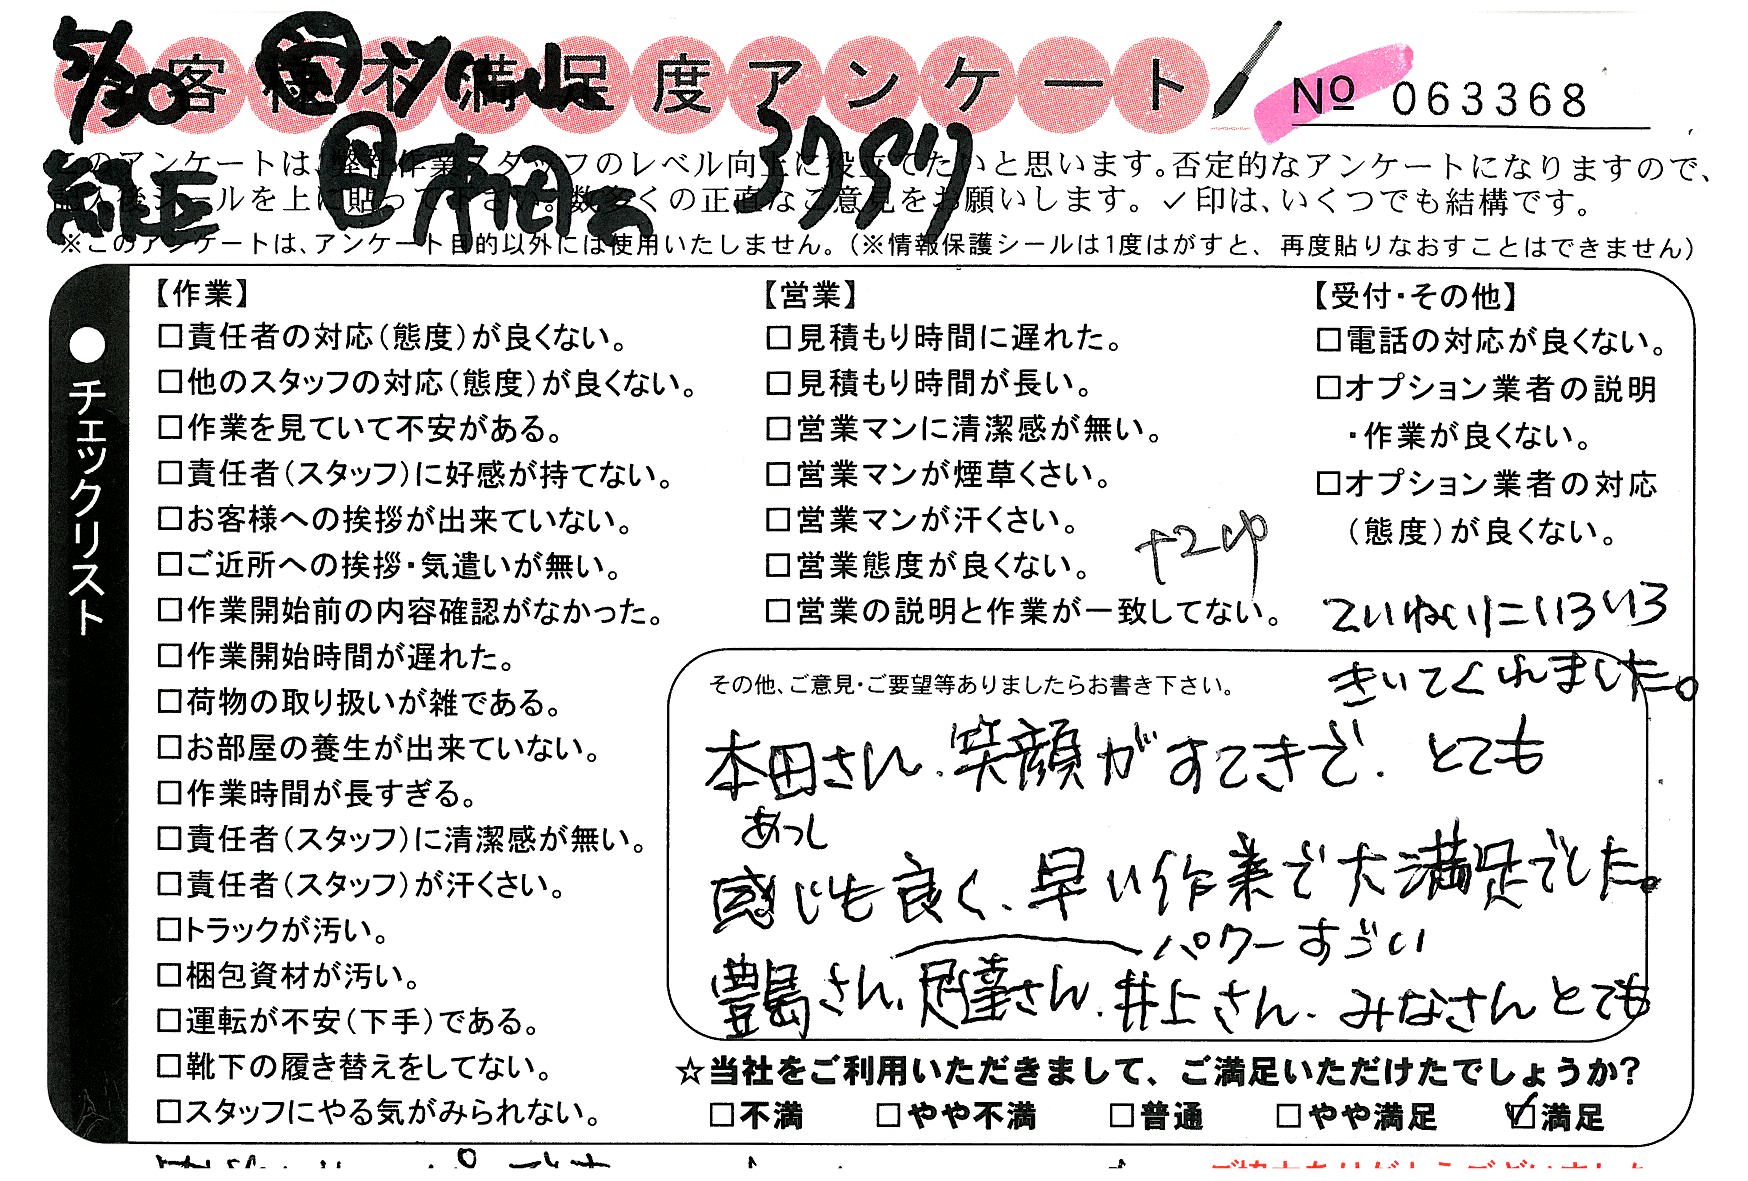 お客様満足度アンケート
5/30
№ 063368
このアンケートは、弊社作業スタッフのレベル向上に役立てたいと思います。否定的なアンケートになりますので、
記入後シールを上に貼って下さい。数多くの正直なご意見をお願いします。✓印は、いくつでも結構です。
本田
※このアンケートは、アンケート目的以外には使用いたしません。(※情報保護シールは1度はがすと、再度貼りなおすことはできません)
●チェックリスト
【作業】
□責任者の対応(態度)が良くない。
□他のスタッフの対応(態度)が良くない。
□作業を見ていて不安がある。
□責任者(スタッフ)に好感が持てない。
□お客様への挨拶が出来ていない。
□ご近所への挨拶・気遣いが無い。
□作業開始前の内容確認がなかった。
□作業開始時間が遅れた。
□荷物の取り扱いが雑である。
□お部屋の養生が出来ていない。
□作業時間が長すぎる。
□責任者(スタッフ)に清潔感が無い。
□責任者(スタッフ)が汗くさい。
□トラックが汚い。
□梱包資材が汚い。
□運転が不安(下手)である。
□靴下の履き替えをしてない。
□スタッフにやる気がみられない。
【営業】
□見積もり時間に遅れた。
□見積もり時間が長い。
□営業マンに清潔感が無い。
□営業マンが煙草くさい。
□営業マンが汗くさい。
□営業態度が良くない。
□営業の説明と作業が一致してない。
【受付・その他】
□電話の対応が良くない。
□オプション業者の説明
・作業が良くない。
□オプション業者の対応
(態度)が良くない。
ていねいにいろいろ
きいてくれました。
その他、ご意見・ご要望等ありましたらお書き下さい。
本田さん、笑顔がすてきで、とても
あつし
感じも良く、早い作業で大満足でした。
パワーすごい
豊島さん、足達さん、井上さん、みなさんとても
☆当社をご利用いただきまして、ご満足いただけたでしょうか?
□不満 □やや不満 □普通 □やや満足 ☑満足